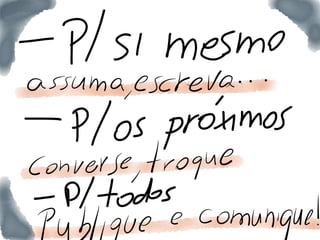 — P/ si mesmo
assuma, escreva...
— P/ os próximos
converse, troque
— P/ todos
Publique e comunique!